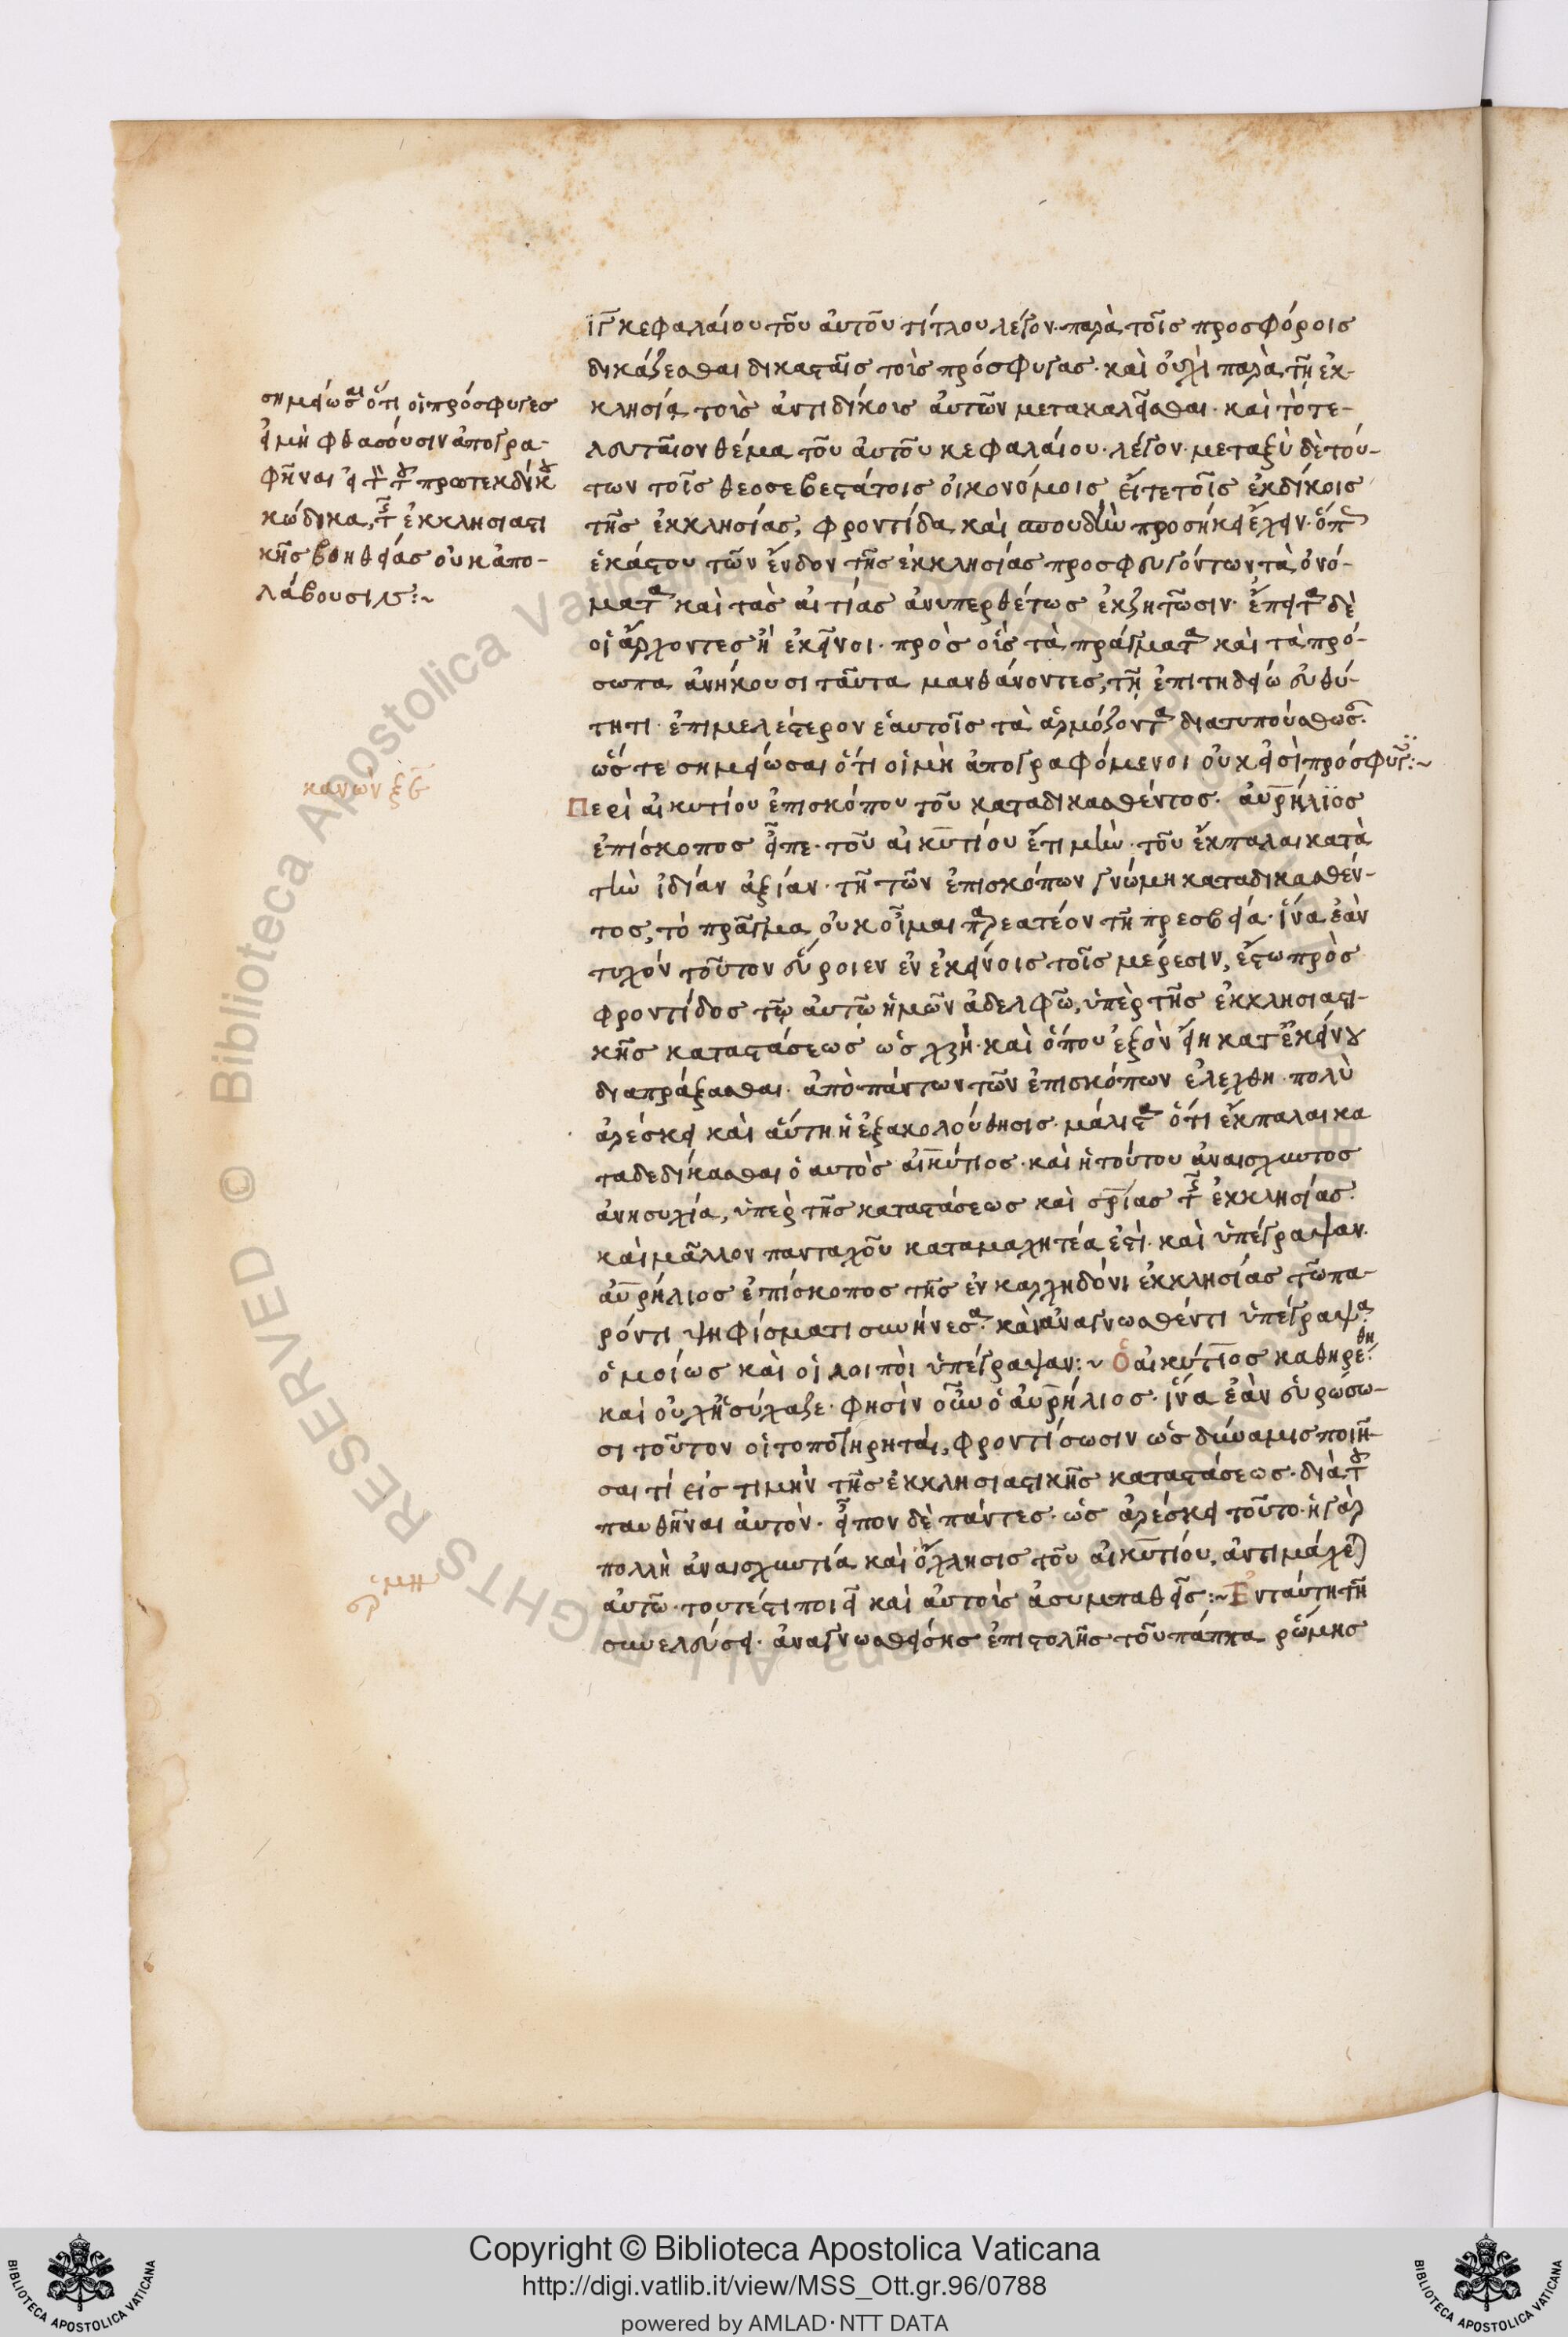 σημείωσαι ὅτι οἱ πρόσφυγες
εἰ μὴ φθάσουσιν ἀπογρα-
φῆναι εἰς τὸν τοῦ πρωτεκδίκου
κώδικα, τῆς ἐκκλησιαστι
κῆς βοηθείας οὐκ ἀπο-
λάβουσιν:~
κανὼν ξε
ιγ κεφαλαίου τοῦ αὐτοῦ τίτλου λέγον· παρὰ τοῖς προσφόροις
δικάζεσθαι δικασταῖς τοὺς πρόσφυγας· καὶ οὐχὶ παρὰ τῇ ἐκ-
κλησίᾳ τοὺς ἀντιδίκους αὐτῶν μετακαλεῖσθαι· καὶ τὸ τε-
λευταῖον θέμα τοῦ αὐτοῦ κεφαλαίου· λέγον· μεταξὺ δὲ τού-
των τοῖς θεοσεβεστάτοις οἰκονόμοις εἴτε τοῖς ἐκδίκοις
τῆς ἐκκλησίας, φροντίδα καὶ σπουδὴν προσήκει ἔχειν· ὅπως
ἑκάστου τῶν ἔνδον τῆς ἐκκλησίας προσφευγόντων τὰ ὀνό-
ματα καὶ τὰς αἰτίας ἀνυπερθέτως ἐκζητῶσιν· ἔπειτα δὲ
οἱ ἄρχοντες ἢ ἐκεῖνοι· πρὸς οἷς τὰ πράγματα καὶ τὰ πρό-
σωπα ἀνήκουσι ταῦτα μανθάνοντες, τῇ ἐπιτηδείω εὐθύ-
τητι· ἐπιμελέστερον ἑαυτοῖς τὰ ἁρμόζοντα διατυπούσθωσαν·
ὥστε σημείωσαι ὅτι οἱ μὴ ἀπογραφόμενοι οὐκ εἰσὶ πρόσφυγες:~
Περὶ αἰκυτίου ἐπισκόπου τοῦ καταδικασθέντος· αὐρήλϊος
ἐπίσκοπος εἶπε· τοῦ αἰκυτίου ἔτι μὴν· τοῦ ἔκπαλαι κατὰ
τὴν ἰδίαν ἀξίαν· τῇ τῶν ἐπισκόπων γνώμη καταδικασθέν-
τος, τὸ πρᾶγμα οὐκ οἶμαι παρεατέον τῇ πρεσβεία· ἵνα ἐὰν
τυχὸν τοῦτον εὕροιεν ἐν ἐκείνοις τοῖς μέρεσιν, ἔστω πρὸς
φροντίδος τῷ αὐτῶ ἡμῶν ἀδελφῶ, ὑπὲρ τῆς ἐκκλησιαστι-
κῆς καταστάσεως ὡς χρὴ· καὶ ὅπου ἐξὸν εἴη κατ' ἐκείνου
διαπράξασθαι· ἀπὸ πάντων τῶν ἐπισκόπων ἐλέχθη· πολὺ
ἀρέσκει καὶ αὕτη ἡ ἐξακολούθησις· μάλιστα ὅτι ἔκπαλαι κα
ταδεδίκασθαι ὁ αὐτὸς αἰκύτιος· καὶ ἡ τούτου ἀναίσχυντος
ἀνησυχία, ὑπὲρ τῆς καταστάσεως καὶ σρίας τῆς ἐκκλησίας·
καὶ μᾶλλον πανταχοῦ καταμαχητέα ἐστί· καὶ ὑπέγραψαν·
αὐρήλιος ἐπίσκοπος τῆς ἐν καλχηδόνι ἐκκλησίας τῶ πα-
ρόντι ψηφίσματι συνήνεσα· καὶ ἀναγνωσθέντι ὑπέγραψα·
ὁμοίως καὶ οἱ λοιποὶ ὑπέγραψαν:~ Ὁ αἰκύτιος καθηρέθη·
καὶ οὐχ ἡσύχαζε· φησὶν οὖν ὁ αὐρήλιος· ἵνα ἐὰν εὑρώσω-
σι τοῦτον οἱ τοποτηρηταί, φροντίσωσιν ὡς δύναμις ποιῆ-
σαι τί εἰς τιμὴν τῆς ἐκκλησιαστικῆς καταστάσεως· διὰ τοῦ
παυθῆναι αὐτόν· εἶπον δὲ πάντες· ὡς ἀρέσκει τοῦτο· ἡ γὰρ
πολλὴ ἀναισχυντία καὶ ὄχλησις τοῦ αἰκυτίου, ἀντιμάχεται
αὐτῶ· τουτέστι ποιεῖ καὶ αὐτοὺς ἀσυμπαθεῖς:~ Ἐν ταύτη τῇ
συνελεύσει· ἀναγνωσθείσης ἐπιστολῆς τοῦ πάππα ῥώμης
Copyright © Biblioteca Apostolica Vaticana
http://digi.vatlib.it/view/MSS_Ott.gr.96/0788
powered by AMLAD·NTT DATA
BIBLIOTECA APOSTOLICA VATICANA
BIBLIOTECA APOSTOLICA VATICANA